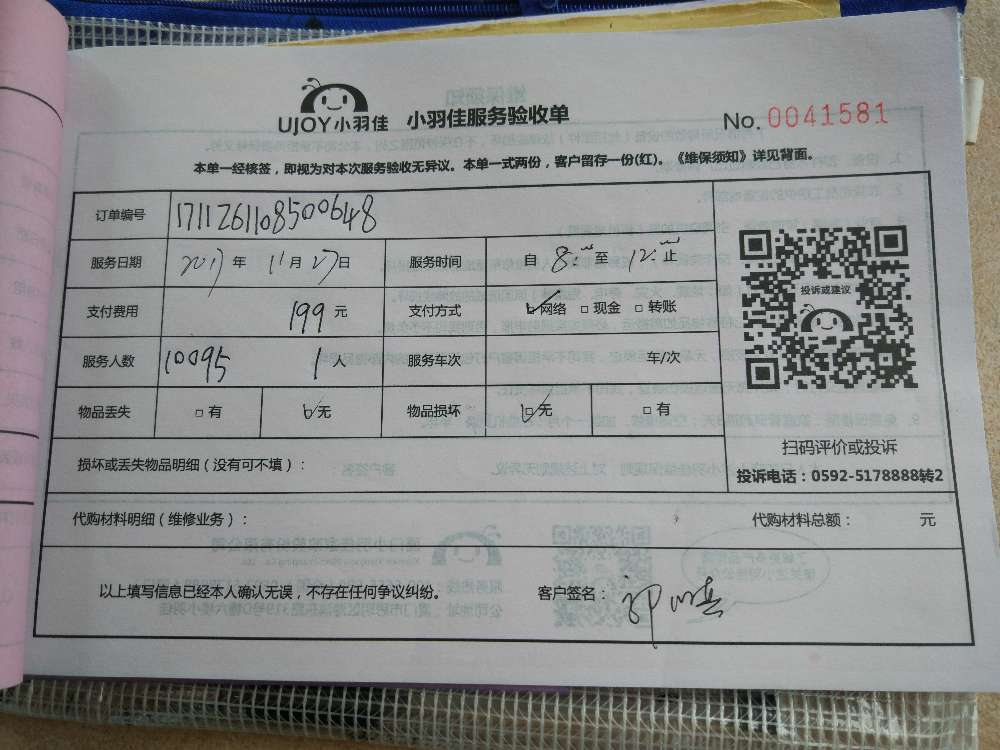 UJOY小羽佳 小羽佳服务验收单 No. 0041581
本单一经核签，即视为对本次服务验收无异议。本单一式两份，客户留存一份(红)。《维保须知》详见背面。
订单编号 171126110850064​8
服务日期 2017年 11月27日 服务时间 自 8:00 至 12:00 止
投诉或建议
支付费用 199 元 支付方式 ☑网络 □现金 □转账
服务人数 10095 1人 服务车次 车/次
物品丢失 □有 ☑无 物品损坏 ☑无 □有
扫码评价或投诉
损坏或丢失物品明细（没有可不填）：
投诉电话：0592-5178888转2
代购材料明细（维修业务）： 代购材料总额： 元
以上填写信息已经本人确认无误，不存在任何争议纠纷。 客户签名：